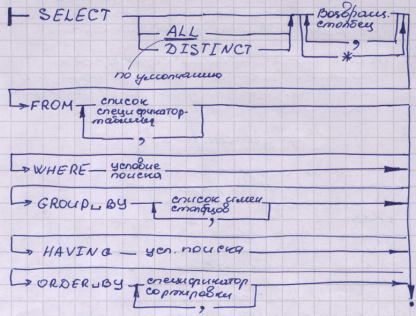 SELECT
ALL
DISTINCT
по умолчанию
Возвращ.
столбец
,
*
FROM список
спецификатор-
таблицы
,
WHERE условие
поиска
GROUP␣BY список имен
столбцов
,
HAVING усл. поиска
ORDER␣BY спецификатор
сортировки
,